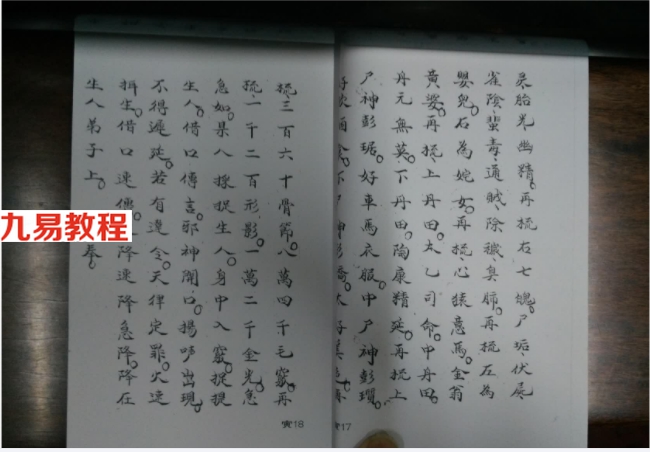 灵胎光幽精。再梳右七魄。尸垢、伏屍、
雀陰、蜚毒、通賊、除穢、臭肺。再梳左為
嬰兒。右為姹女。再梳心猿意馬。金翁
黃婆。再梳上丹田。太乙司命。中丹田。
丹元無英。下丹田。陶康精延。再梳上
尸神彭琚。好車馬衣服。中尸神彭瓚。
好飲酒食。下尸神彭矯。大好
梳三百六十骨節。八萬四千毛竅。再
梳一千二百形影。一萬二千金光。急
急如果八採捉生人。身中入竅。捉捉
生人。借口傳言。邪神開口。揚吵出現。
不得遲延。若有違令。天律定罪。火速
捐生。借口速傳。降速降急降。降在
生人弟子上。奉。
17
18
九易教程